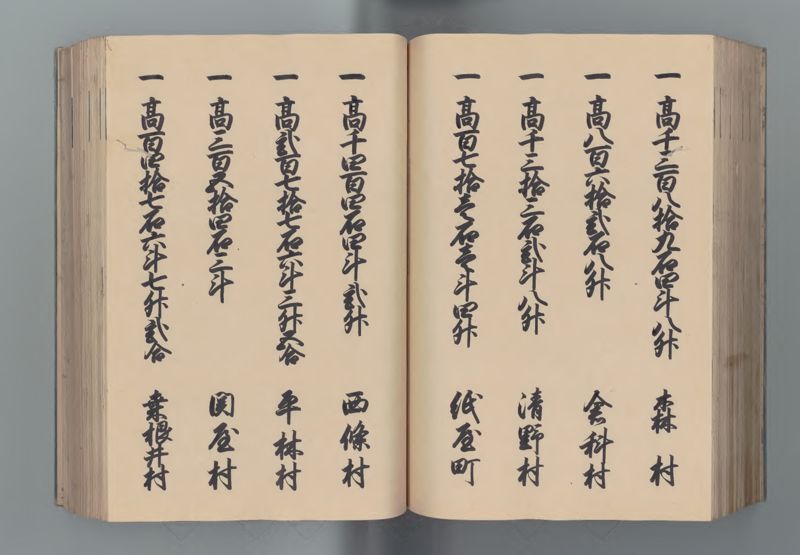 一 高千三百八拾九石四斗八升 森村
一 高八百六拾弐石八升 倉科村
一 高千三拾三石弐斗八升 清野村
一 高百七拾壱石壱斗四升 紙屋町
一 高千四百四石四斗弐升 西條村
一 高弐百七拾七石六斗三升五合 平林村
一 高三百五拾四石三斗 関屋村
一 高百四拾七石六斗七升弐合 桑根井村